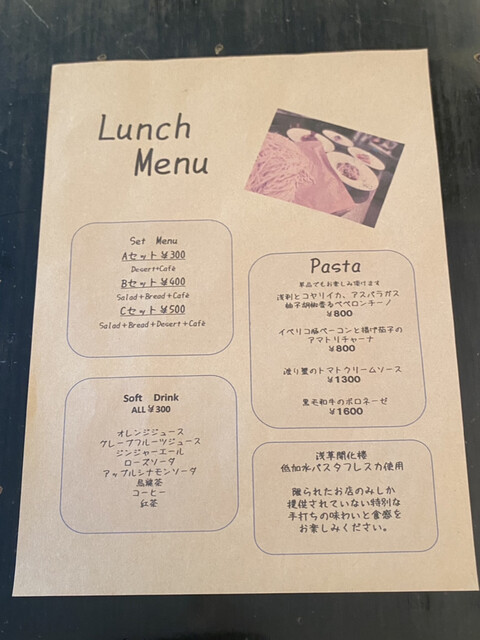 Lunch
Menu
Set Menu
Aセット¥300
Desert+Cafè
Bセット¥400
Salad+Bread+Cafè
Cセット¥500
Salad+Bread+Desert+Cafè
Soft Drink
ALL¥300
オレンジジュース
グレープフルーツジュース
ジンジャーエール
ローズソーダ
アップルシナモンソーダ
烏龍茶
コーヒー
紅茶
Pasta
単品でもお楽しみ頂けます
浅利とコヤリイカ、アスパラガス
柚子胡椒香るペペロンチーノ
¥800
イベリコ豚ベーコンと揚げ茄子の
アマトリチャーナ
¥800
渡り蟹のトマトクリームソース
¥1300
黒毛和牛のボロネーゼ
¥1600
浅草開化楼
低加水パスタフレスカ使用
限られたお店のみしか
提供されていない特別な
手打ちの味わいと食感を
お楽しみください。